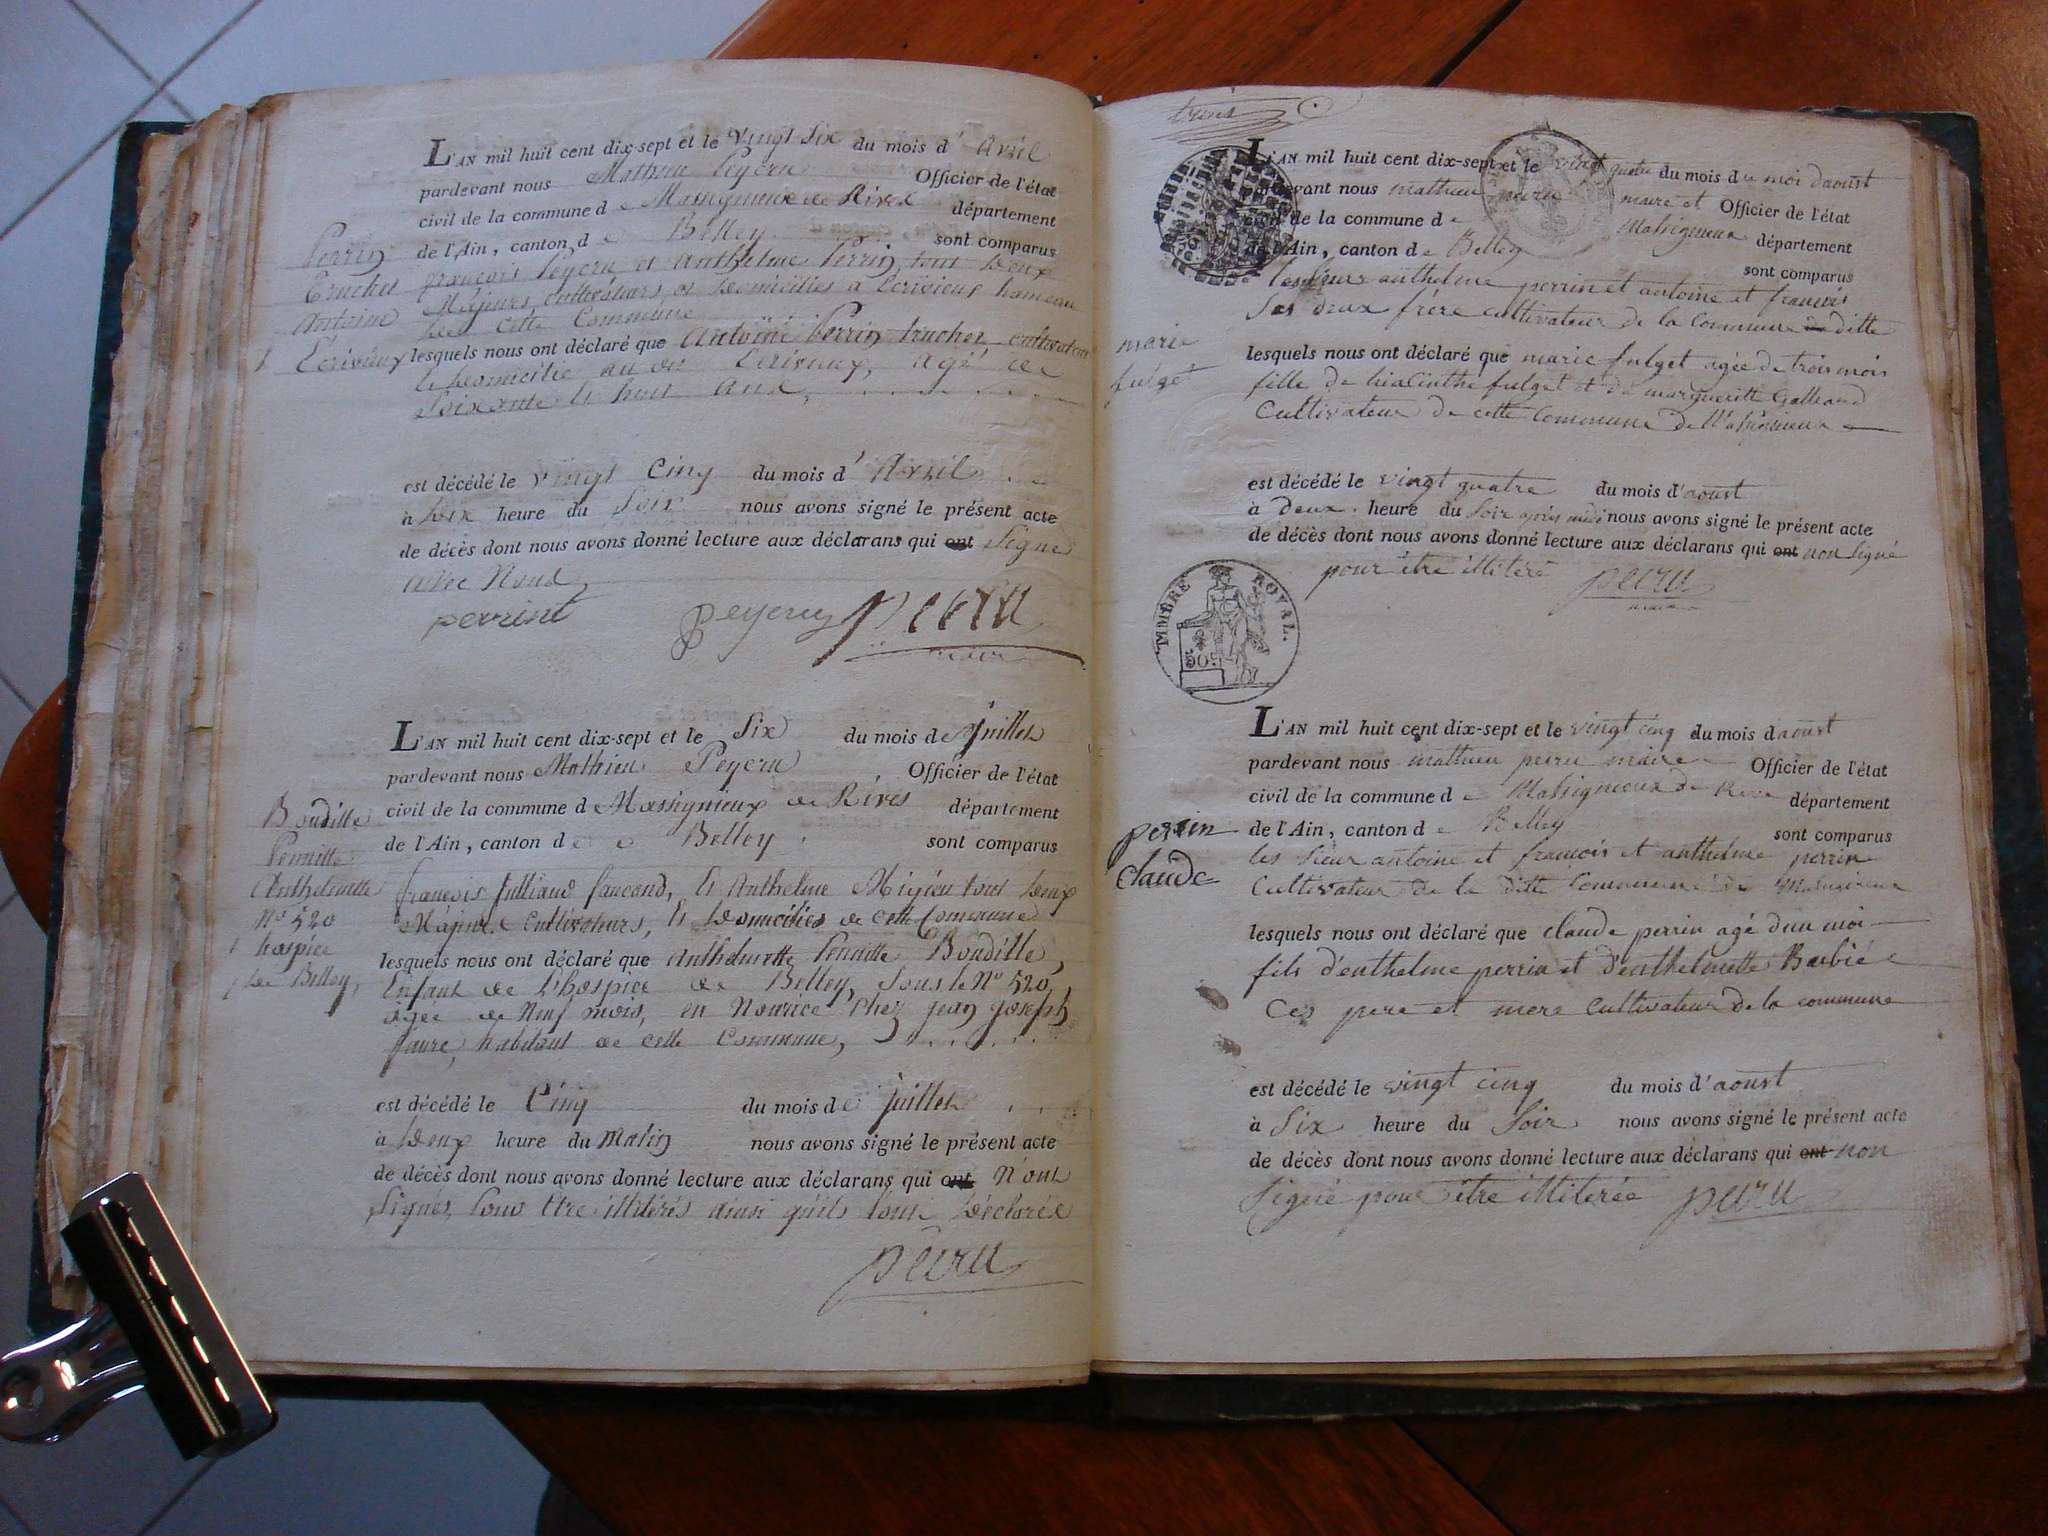 L'AN mil huit cent dix-sept et le vingt Six du mois d' Avril
pardevant nous Mathieu Peyeru Officier de l'état
civil de la commune de Massignieux de Rives département
de l'Ain, canton de Belley sont comparus
Perrin
Truchet
Antoine
Ecrivieux
françois Peyeru et Anthelme Perrin, tout deux
Majeurs, cultivateurs, et domiciliés à Ecrivieux hameau
de cette Commune
lesquels nous ont déclaré que Antoine Perrin truchet cultivateur
et domicilié au dit Ecrivieux, agé de
Soixante et huit ans,
est décédé le vingt Cinq du mois d' Avril
à dix heure du Soir nous avons signé le présent acte
de décès dont nous avons donné lecture aux déclarans qui ont Signé
avec Nous
perrint peyeru peiru
maire
L'AN mil huit cent dix-sept et le Six du mois de Juillet
pardevant nous Mathieu Peyeru Officier de l'état
civil de la commune d Massignieux de Rives département
de l'Ain, canton de Belley sont comparus
Bouditte
Anthelmette
N° 520
hospice
de Belley,
françois Julliand, et Anthelme Migieu tout deux
Majeurs Cultivateurs, Et domiciliés de cette Commune
lesquels nous ont déclaré que Anthelmette Bouditte,
Enfant de L'hospice de Belley, Sous le N° 520,
agée de Neuf mois, en Nourice Chez jean joseph
faure, habitant de cette Commune,
est décédé le Cinq du mois de Juillet
à deux heure du Matin nous avons signé le présent acte
de décès dont nous avons donné lecture aux déclarans qui ont N'ont
Signés, Pour Etre illitérés ainsi qu'ils l'ont Déclarée
peiru
trois
L'AN mil huit cent dix-sept et le vingt quatre du mois du moi daoust
pardevant nous mathieu peiru maire et Officier de l'état
civil de la commune de Massigneux département
de l'Ain, canton de Belley sont comparus
les sieur anthelme perrin et antoine et françois
Ses deux frére cultivateur de la Commune de ditte
marie
fulget
lesquels nous ont déclaré que marie fulget agée de trois moi
fille de hiacinthe fulget et de margueritte Galleand
Cultivateur de cette Commune de Massigneux
est décédé le vingt quatre du mois d'aoust
à Deux heure du Soir après midi nous avons signé le présent acte
de décès dont nous avons donné lecture aux déclarans qui ont non Signé
pour être illitéré peiru
maire
TIMBRE ROYAL.
50C
L'AN mil huit cent dix-sept et le vingt cinq du mois daoust
pardevant nous mathieu peiru maire Officier de l'état
civil de la commune de Massigneux de Rive département
de l'Ain, canton de Belley sont comparus
perrin
claude
les sieur antoine et francois et anthelme perrin
Cultivateur de la ditte Commune de Massigneux
lesquels nous ont déclaré que claude perrin agé dun moi
fils d'enthelme perrin et d'enthelmette Barbiée
Ces pere et mere cultivateur de la commune
est décédé le vingt cinq du mois d'aoust
à Six heure du Soir nous avons signé le présent acte
de décès dont nous avons donné lecture aux déclarans qui ont non
Signé pour être illiterée peiru